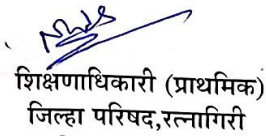 शिक्षणाधिकारी (प्राथमिक)
जिल्हा परिषद,रत्नागिरी